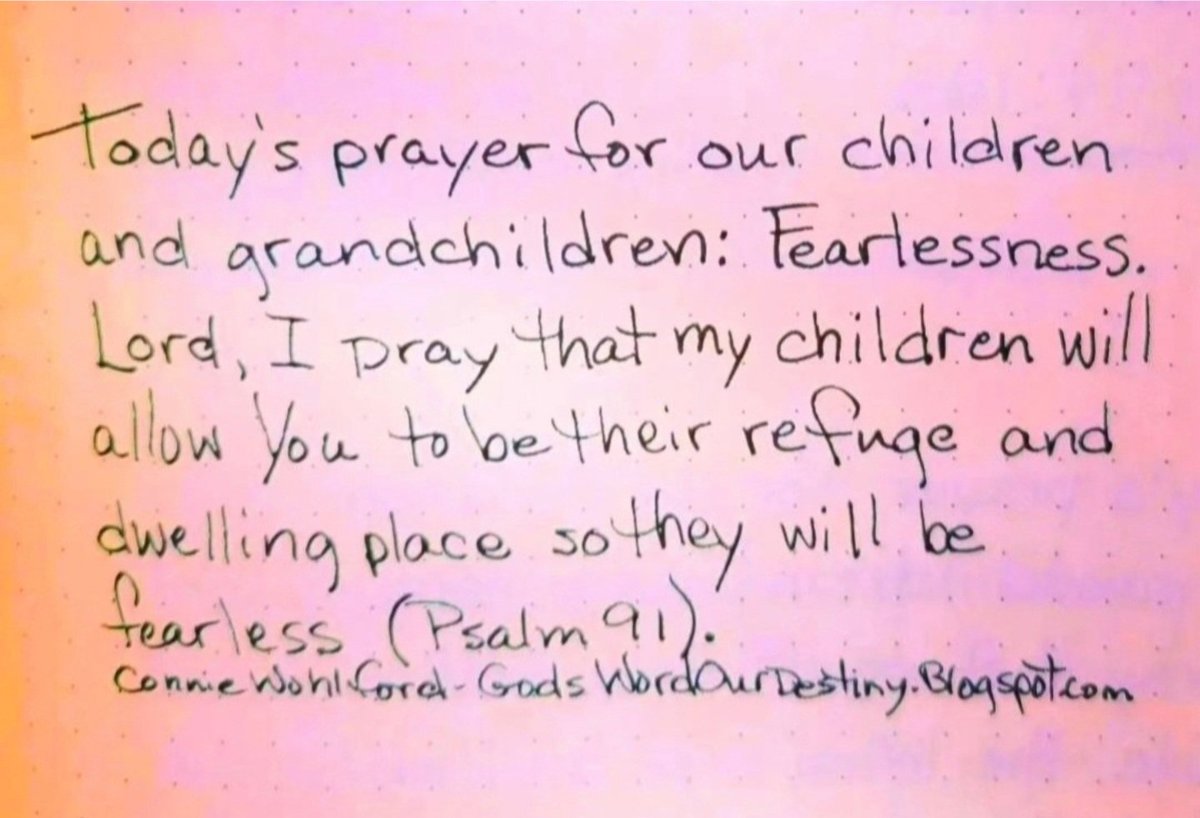 Today's prayer for our children
and grandchildren: Fearlessness.
Lord, I pray that my children will
allow You to be their refuge and
dwelling place so they will be
fearless (Psalm 91).
Connie Wohlford - GodsWordOurDestiny.Blogspot.com